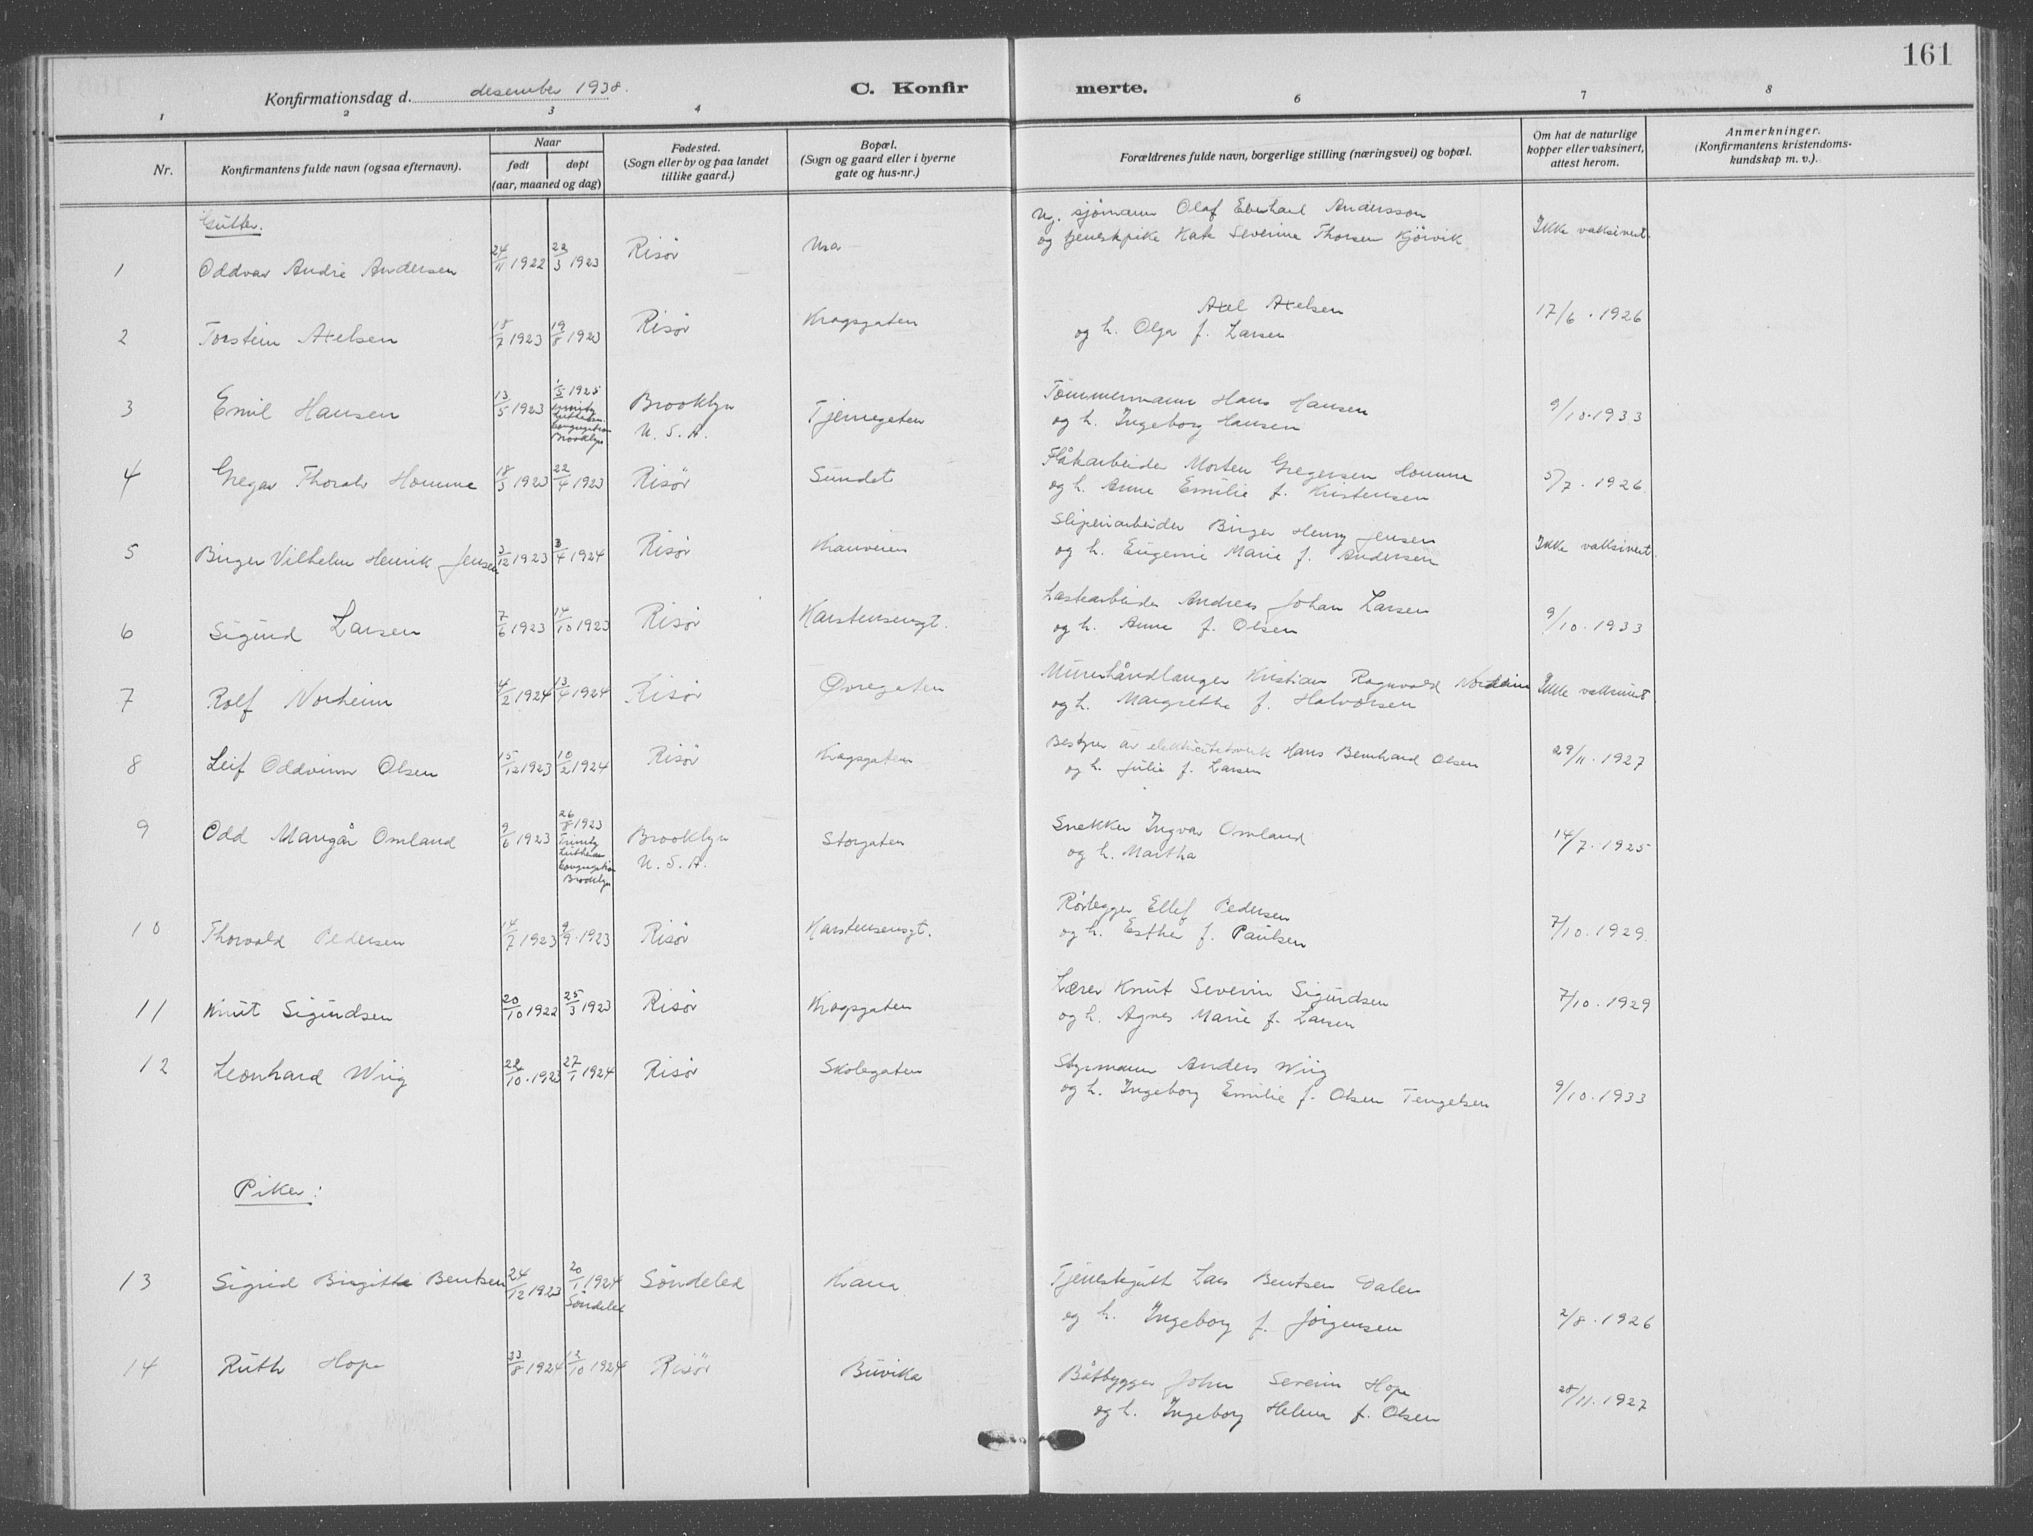 161
Konfirmationsdag d. desember 1938.
C. Konfirmerte.
1 2 3 4 6 7 8
Nr.
Konfirmantens fulde navn (ogsaa efternavn).
Naar
født døpt
(aar, maaned og dag)
Fødested.
(Sogn eller by og paa landet
tillike gaard.)
Bopæl.
(Sogn og gaard eller i byerne
gate og hus-nr.)
Forældrenes fulde navn, borgerlige stilling (næringsvei) og bopæl.
Om hat de naturlige
kopper eller vaksinert,
attest herom.
Anmerkninger.
(Konfirmantens kristendoms-
kundskap m. v.).
Gutter.
1 Oddvar Andre Andersen 24/11 1922 23/3 1923 Risör Ura
Ug. sjömann Olaf Eberhard Andersson
og tjenestpike Kate Severine Thorsen Kjörvik
Ikke vaksinert.
2 Torstein Axelsen 18/7 1923 19/8 1923 Risör Kragsgaten
Axel Axelsen
og h. Olga f. Larsen
17/6. 1926
3 Emil Hansen 13/5 1923 1/5 1925 Trinity Lutheran Congregation Brooklyn
Brooklyn
U. S. A.
Tjennegaten
Tömmermann Hans Hansen
og h. Ingeborg Hansen
9/10. 1933
4 Gregar Thoralv Homme 18/3 1923 22/4 1923 Risör Sundet
Flåtarbeider Morten Gregersen Homme
og h. Anne Emilie f. Kristensen
5/7. 1926.
5 Birger Vilhelm Henrik Jensen 3/12 1923 3/4 1924 Risör Kranveien
Sliperiarbeider Birger Henry Jensen
og h. Eugenie Marie f. Andersen
Ikke vaksinert.
6 Sigurd Larsen 7/6 1923 14/10 1923 Risör Karstensensgt.
Lastearbeider Andreas Johan Larsen
og h. Anne f. Olsen
9/10. 1933
7 Rolf Norheim 4/2 1924 13/4 1924 Risör Övregaten
Murerhåndlanger Kristian Ragnvald
og h. Margrethe f. Halvorsen
Ikke vaksinert.
8 Leif Oddvinn Olsen 15/12 1923 10/2 1924 Risör Kragsgaten
Bestyrer av elektricitetsverk Hans Bernhard Olsen
og h. Julie f. Larsen
29/11. 1927
9 Odd Omland 9/6 1923 26/8 1923 Trinity Lutheran Congregation Brooklyn
Brooklyn
U. S. A.
Storgaten
Snekker Ingvar Omland
og h. Martha
14/7. 1925
10 Thorvald Pedersen 14/7 1923 9/9. 1923 Risör Karstensensgt.
Rörlegger Ellef Pedersen
og h. Esther f. Paulsen
7/10. 1929.
11 Knut Sigurdsen 20/10 1922 25/3 1923 Risör Kragsgaten
Lærer Knut Severin Sigurdsen
og h. Agnes Marie f. Larsen
7/10. 1929
12 Leonhard Wiig 22/10. 1923 27/1 1924 Risör Skolegaten
Styrmann Anders Wiig
og h. Ingeborg Emilie f. Olsen Tengelsen
9/10. 1933
Piker:
13 Sigrid Birgitte Bentsen 24/12 1923 20/1 1924 Söndeled
Söndeled
Krana
Tjenestegutt Lars Bentsen Dalen
og h. Ingeborg f. Jörgensen
2/8. 1926
14 Ruth Hope 23/8 1924 12/10 1924 Risör Buvika
Båtbygger John Severin Hope
og h. Ingeborg Helene f. Olsen
28/11. 1927